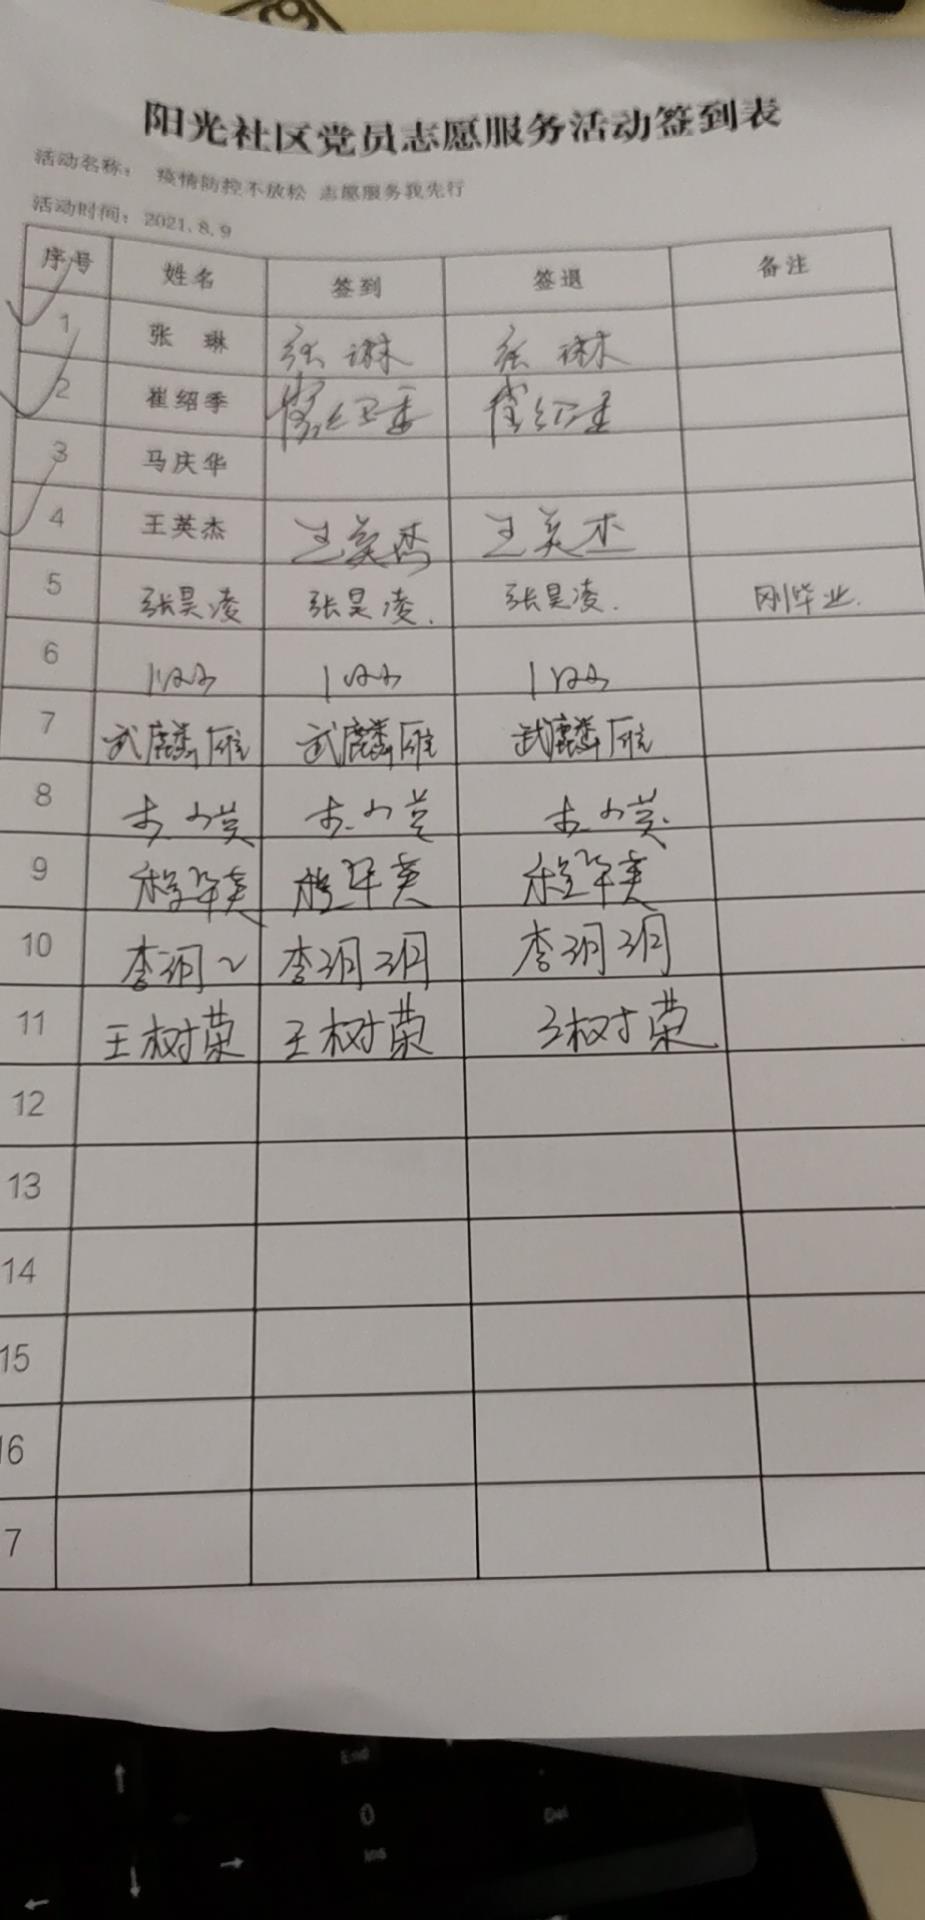 阳光社区党员志愿服务活动签到表
活动名称： 疫情防控不放松 志愿服务我先行
活动时间：2021.8.9
序号 姓名 签到 签退 备注
1 张 琳 张 琳 张 琳
2 崔绍季 崔绍季 崔绍季
3 马庆华
4 王英杰 王英杰 王英杰
5 张昊凌 张昊凌. 张昊凌. 刚毕业.
6
7 武麟雁 武麟雁 武麟雁
8
9 程华英 程华英 程华英
10 李玥~ 李玥玥 李玥玥
11 王树荣 王树荣 王树荣
12
13
14
15
16
7
End
0
Ins
Del